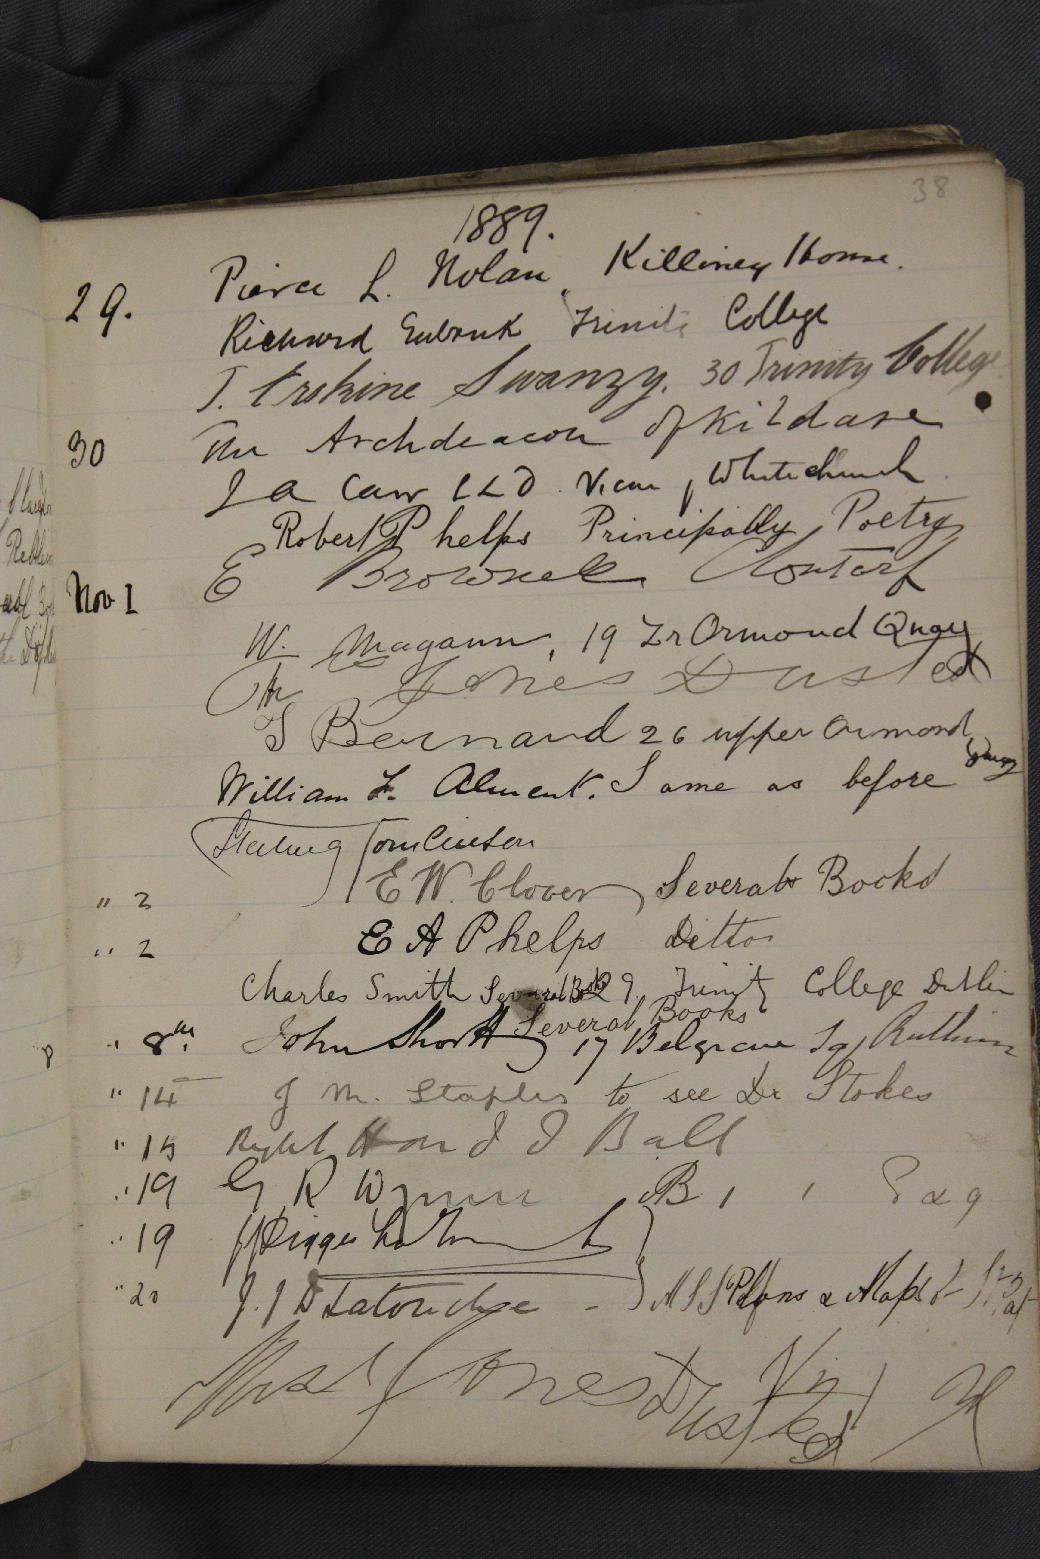 38
1889.
29. Pierce L. Nolan, Killiney House.
Richard Eubank Trinity College
T. Erskine Swanzy. 30 Trinity College
30 The Archdeacon of Kildare
J A Carr LLD Vicar, Whitechurch
Robert Phelps Principally Poetry
Nov 1 E Brownell Clontarf
W. Magann, 19 Lr Ormond Quay
Jones Dusted
T Bernard 26 upper Ormond Quay
William F. Alment. Same as before
Sterling Tomlinson
" 2 E W. Clover, Several Books
" 2 E A Phelps Ditto
Charles Smith Several Books 9, Trinity College Dublin
Several Books
" 8th. John Short 17 Belgrave Sq, Rathmines
" 14 J M. Staples to see Dr Stokes
" 15 Right Hon J T Ball
" 19 G R Wynne
" 19
" 20 J. J D Latouche - & Maps
Jones Dusted